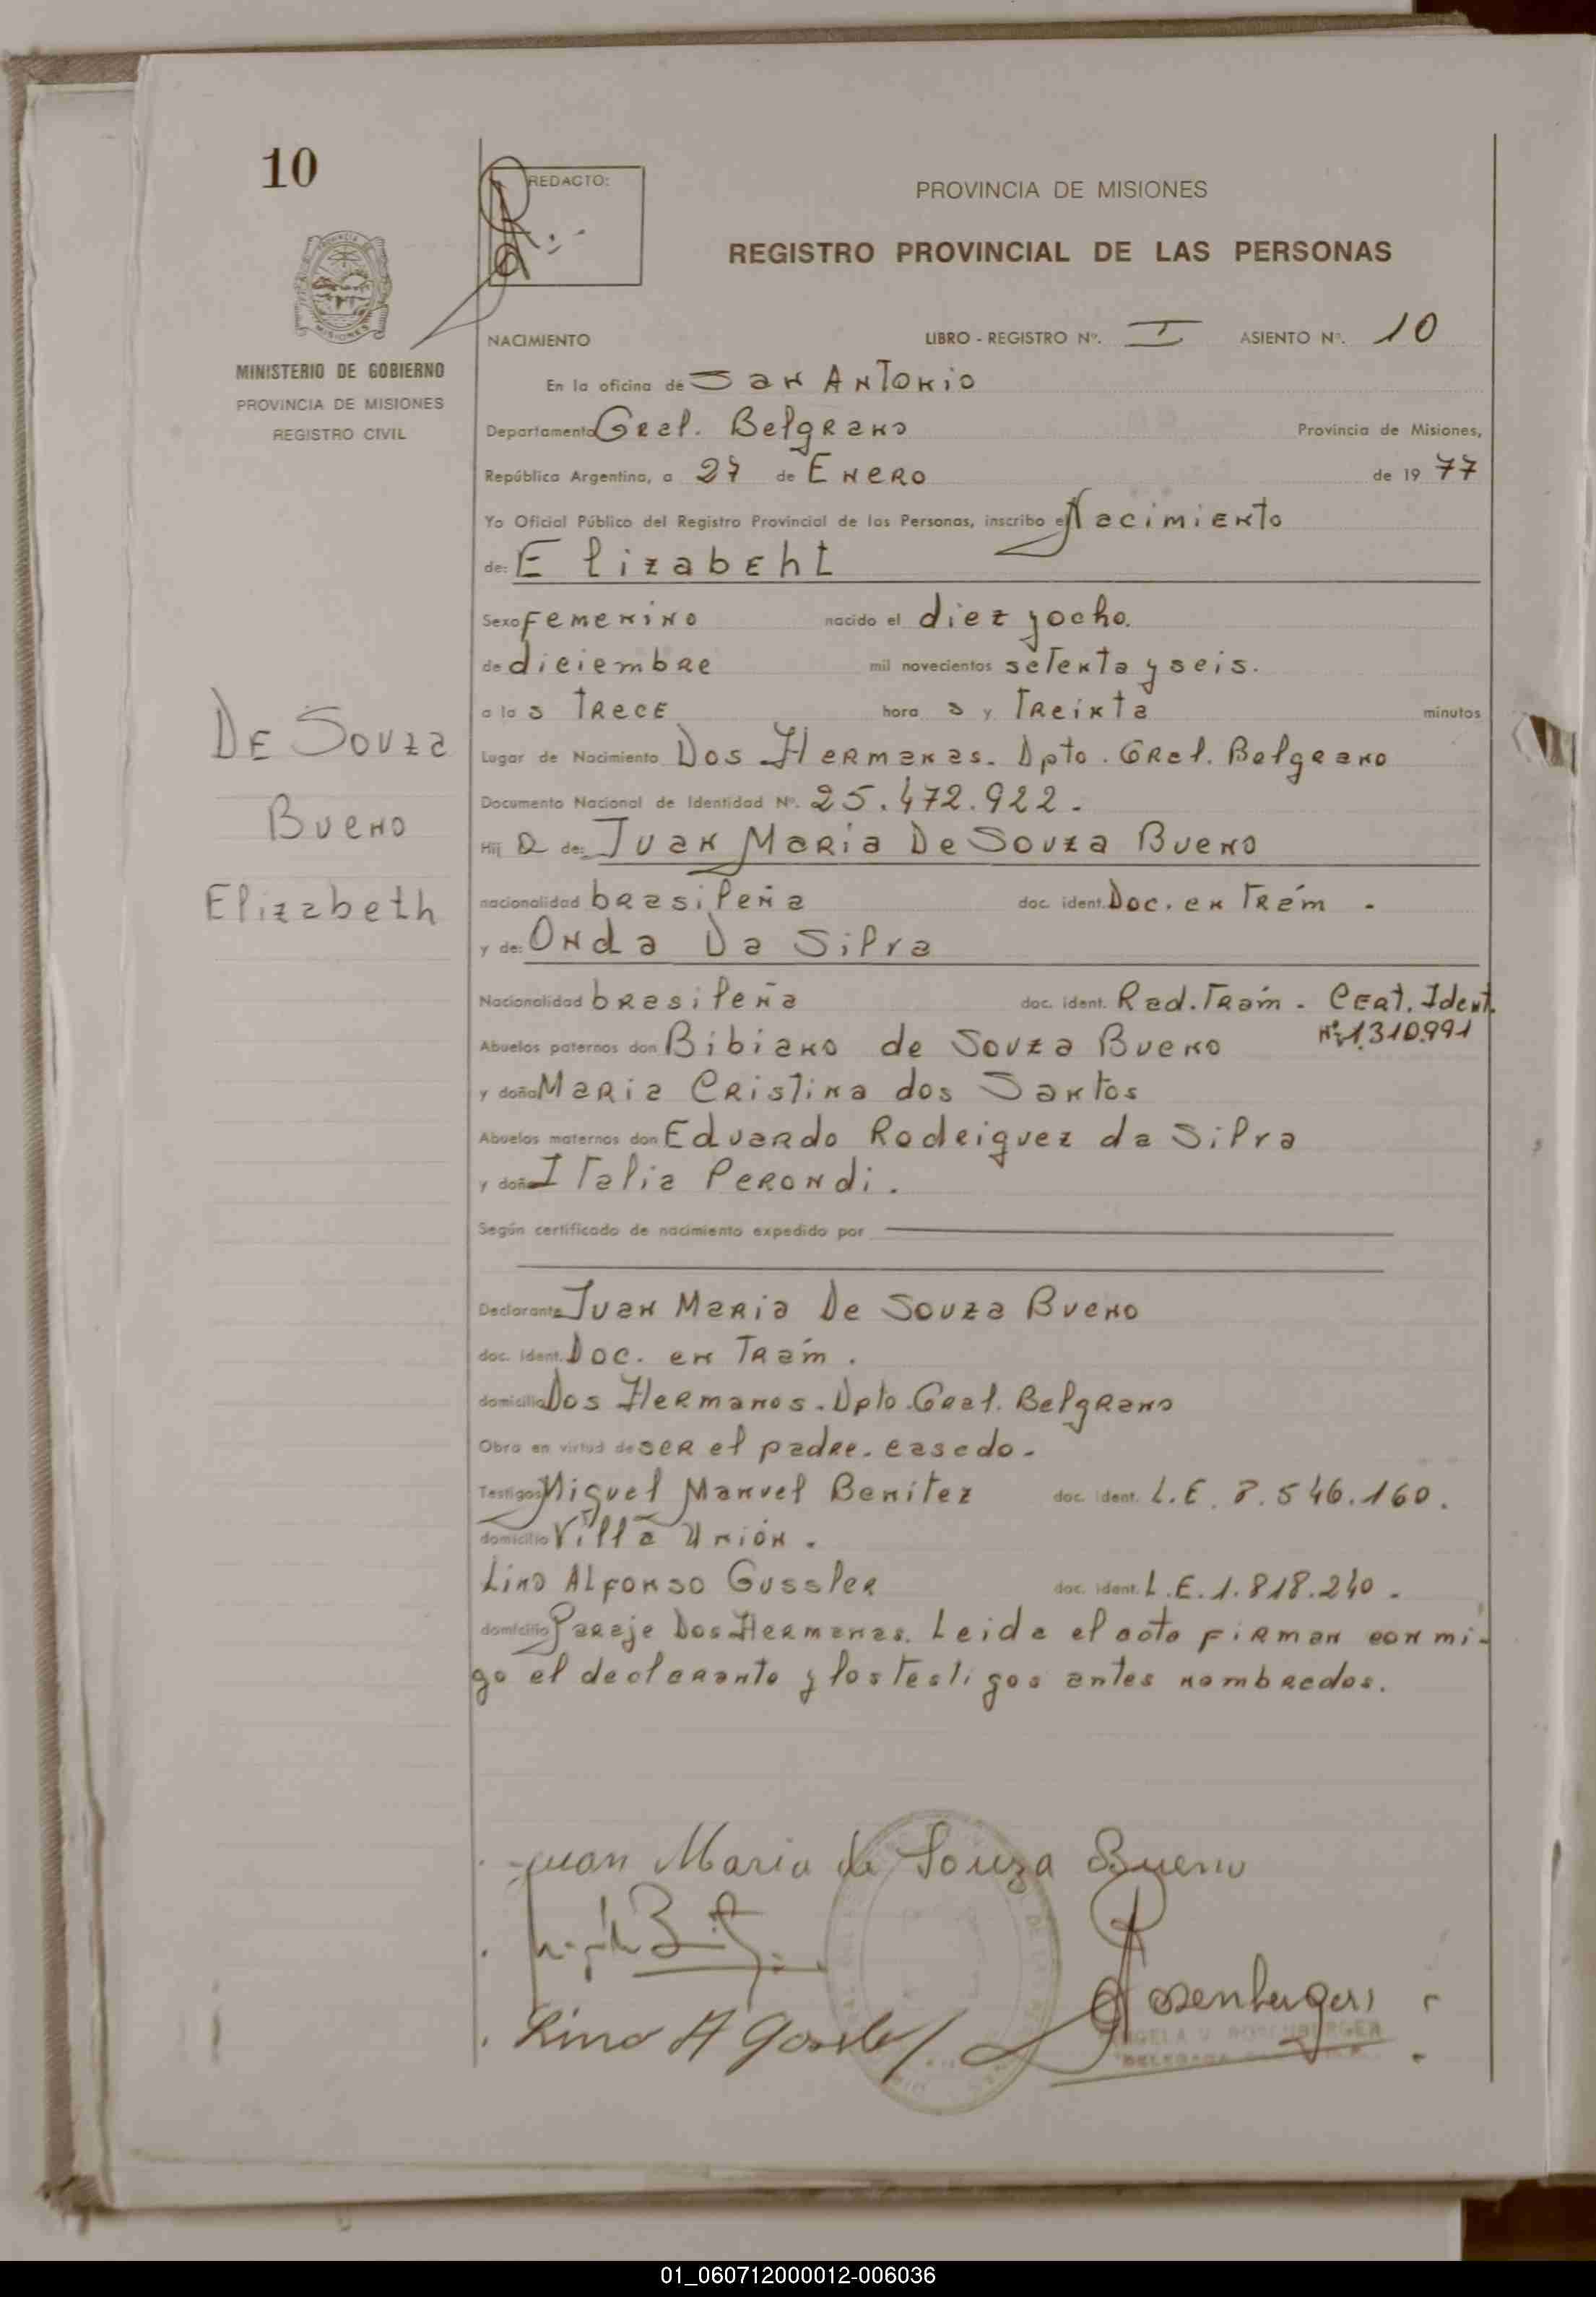 10
REDACTO:
PROVINCIA DE MISIONES
REGISTRO PROVINCIAL DE LAS PERSONAS
MINISTERIO DE GOBIERNO
PROVINCIA DE MISIONES
REGISTRO CIVIL
NACIMIENTO LIBRO - REGISTRO Nº. I ASIENTO Nº. 10
En la oficina de San Antonio
Departamento Gral. Belgrano Provincia de Misiones,
República Argentina, a 27 de Enero de 1977
Yo Oficial Público del Registro Provincial de las Personas, inscribo el Nacimiento
de: Elizabeht
Sexo Femenino nacido el diez y ocho.
de diciembre mil novecientos setenta y seis.
a las trece horas y treinta minutos
Lugar de Nacimiento Dos Hermanas. Dpto. Gral. Belgrano
Documento Nacional de Identidad Nº. 25.472.922.
Hija de: Juan Maria De Souza Bueno
nacionalidad brasileña doc. ident. Doc. en Trám.
y de: Onda Da Silva
Nacionalidad brasileña doc. ident. Rad. Trám. Cert. Ident.
Nº 1.310.991
Abuelos paternos don Bibiano de Souza Bueno
y doña Maria Cristina dos Santos
Abuelos maternos don Eduardo Rodriguez da Silva
y doña Italia Perondi.
Según certificado de nacimiento expedido por
Declarante Juan Maria De Souza Bueno
doc. ident. Doc. en Trám.
domicilio Dos Hermanas. Dpto. Gral. Belgrano
Obra en virtud de ser el padre. casado.
Testigos Miguel Manuel Benitez doc. ident. L.E. 7.546.160.
domicilio Villa Unión.
Lino Alfonso Gussler doc. ident. L.E. 1.818.240.
domicilio Paraje Dos Hermanas. Leida el acta firman conmi-
go el declarante y los testigos antes nombrados.
De Souza
Bueno
Elizabeth
Juan Maria de Souza Bueno
Lino A
Rosenberger
ROSENBERGER
01_060712000012-006036